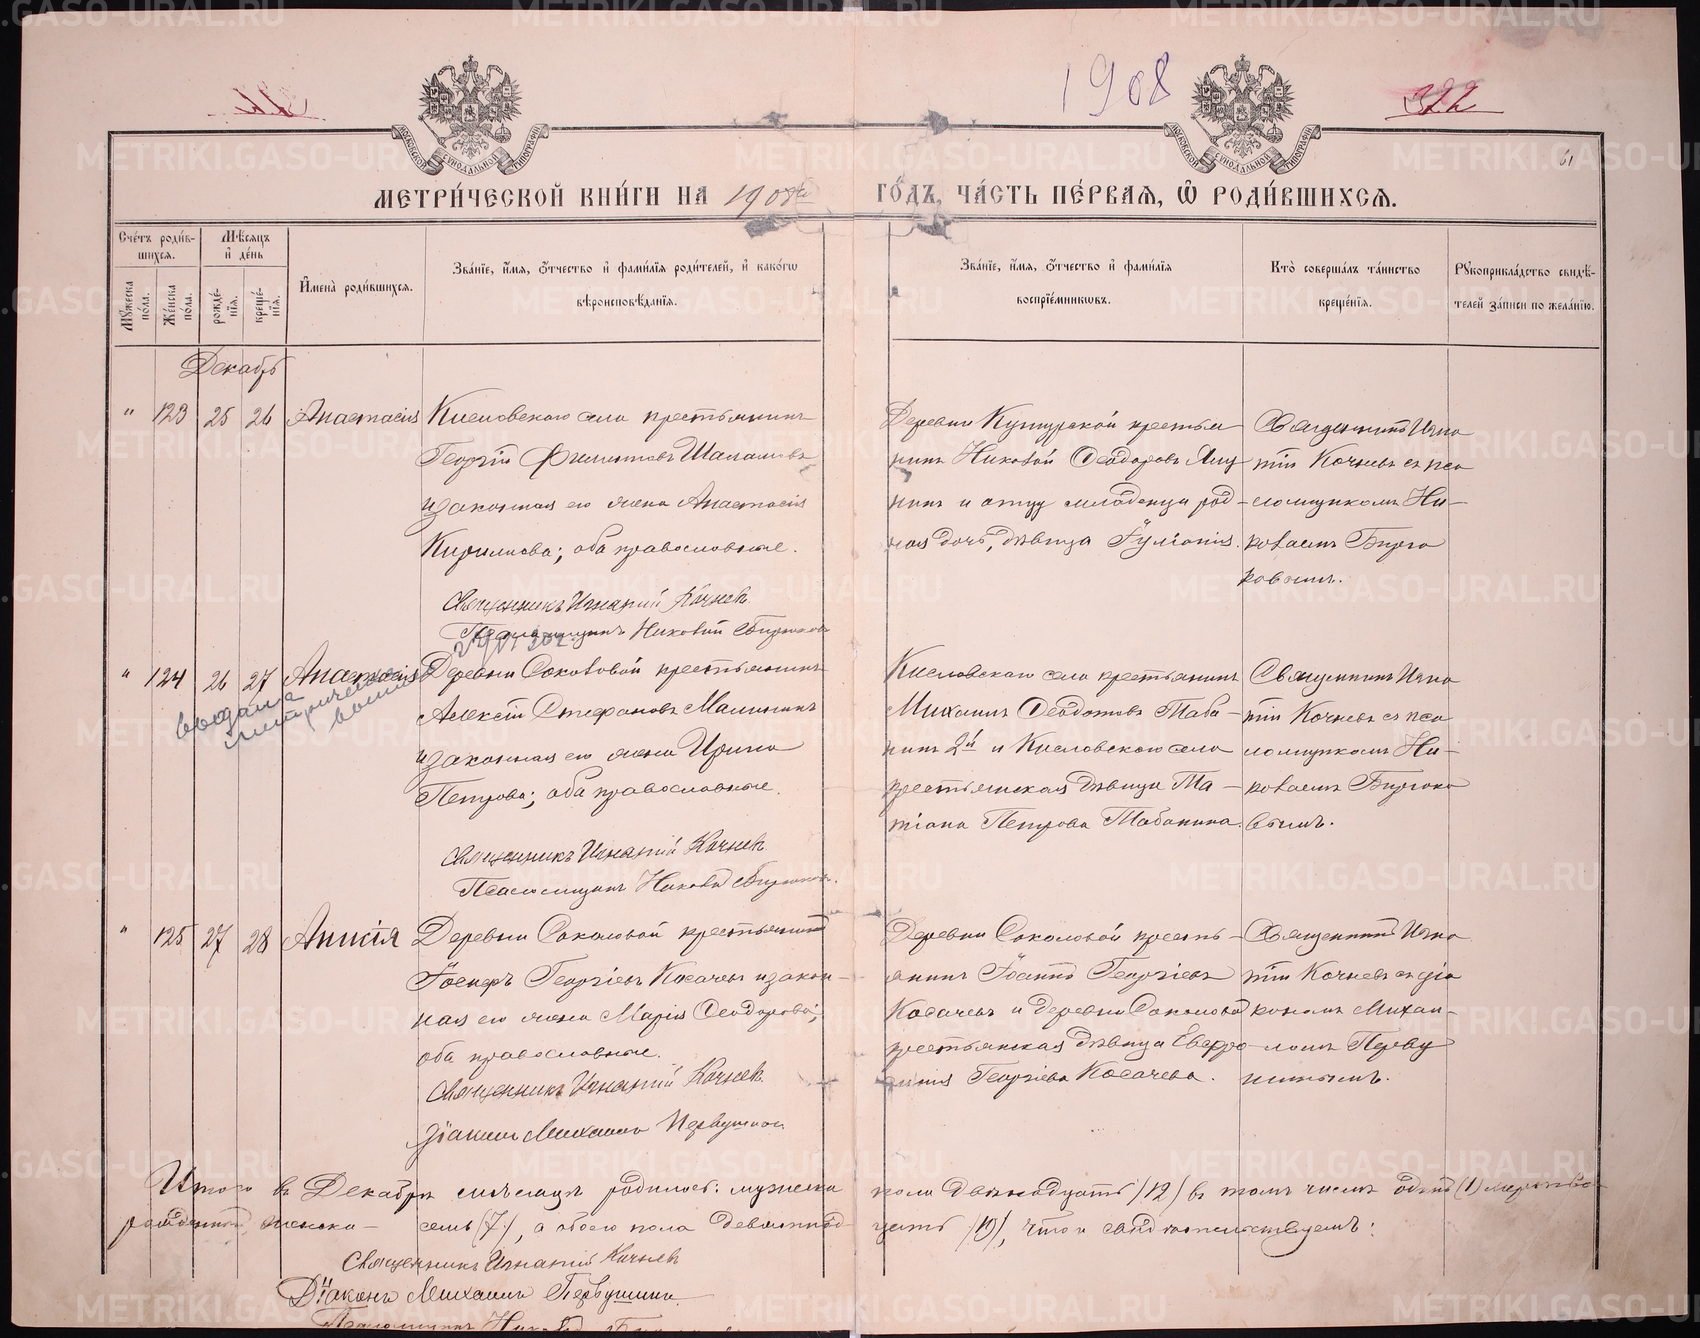 1908
322
61
МОСКОВСКОЙ СУНОДАЛЬНОЙ ТИПОГРАФІИ
МОСКОВСКОЙ СУНОДАЛЬНОЙ ТИПОГРАФІИ
МЕТРИ́ЧЕСКОЙ КНИ́ГИ НА 1908й ГО́ДЪ, ЧА́СТЬ ПЕ́РВАЯ, Ѿ РОДИ́ВШИХСЯ.
Сче́тъ роди́в-
шихся.
Мѣ́сяцъ
и҆ де́нь
Мꙋ́жеска по́ла.
Же́нска по́ла.
рожде́-
нїя.
креще́-
нїя.
И҆мена̀ роди́вшихся.
Зва́нїе, и҆́мя, ѻ҆́тчество и҆ фами́лїя роди́телей, и҆ како́гѡ
вѣроисповѣ́данїя.
Зва́нїе, и҆́мя, ѻ҆́тчество и҆ фами́лїя
воспрїе́мниковъ.
Кто̀ соверша́лъ та́инство
креще́нїя.
Рꙋкоприкла́дство свидѣ́-
телей за́писи по жела́нїю.
Декабрь
" 123 25 26 Анастасія
Кисловскаго села крестьянинъ
Георгій Филиповъ Шаламовъ
и законная его жена Анастасія
Кирилова; оба православные.
Священникъ Игнатій Кочневъ
Псаломщикъ Никовай Бирюковъ
Деревни крестья
нинъ Никовай Ѳеодоровъ
нинъ и отцу младенца род-
ная дочь, дѣвица Іуліанія.
Священникъ Игна
тій Кочневъ съ пса
ломщикомъ Ни-
коваемъ Бирю
ковымъ.
" 124 26 27 Анастасія
выдана
метрическая
выпись
Деревни Соколовой крестьянинъ
Алексій Стефановъ Малининъ
и законная его жена Ирина
Петрова; оба православные.
Священникъ Игнатій Кочневъ
Псаломщикъ Никовай Бирюковъ.
Кисловскаго села крестьянинъ
Михаилъ Ѳеодотовъ Таба-
нинъ 2й и Кисловскаго села
крестьянская дѣвица Та-
тіана Петрова Табанина.
Священникъ Игна
тій Кочневъ съ пса
ломщикомъ Ни-
коваемъ Бирюко
вымъ.
" 125 27 28 Анисія
Деревни Соколовой крестьянинъ
Іосифъ Георгіевъ Косачевъ и закон-
ная его жена Марія Ѳеодорова;
оба православные.
Священникъ Игнатій Кочневъ
Діаконъ Михаилъ Первушинъ
Деревни Соколовой кресть-
янинъ Іоаннъ Георгіевъ
Косачевъ и деревни Соколовой
крестьянская дѣвица Евфро-
синія Георгіева Косачева.
Священникъ Игна
тій Кочневъ съ діа
кономъ Михаи-
ломъ Перву
шинымъ.
Итого въ Декабрѣ мѣсяцѣ родилось: мужеска пола двѣнадцать /12/ въ томъ числѣ одинъ (1) мертво
рожденный, женска - семь (7), а обоего пола девятнад-
цать /19/, что и свидѣтельствуемъ:
Священникъ Игнатій Кочневъ
Діаконъ Михаилъ Первушинъ
Псаломщикъ
METRIKI.GASO-URAL.RU